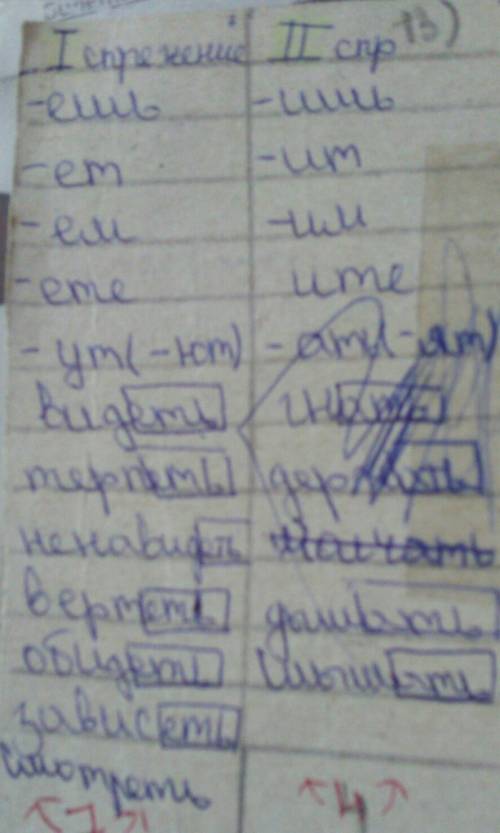 I спряжение II спр 13)
-ешь -ишь
-ет -ит
-ем -им
-ете ите
-ут(-ют) -ат(-ят)
видеть гнать
терпеть держать
ненавидеть
вертеть дышать
обидеть слышать
зависеть
смотреть
7 4